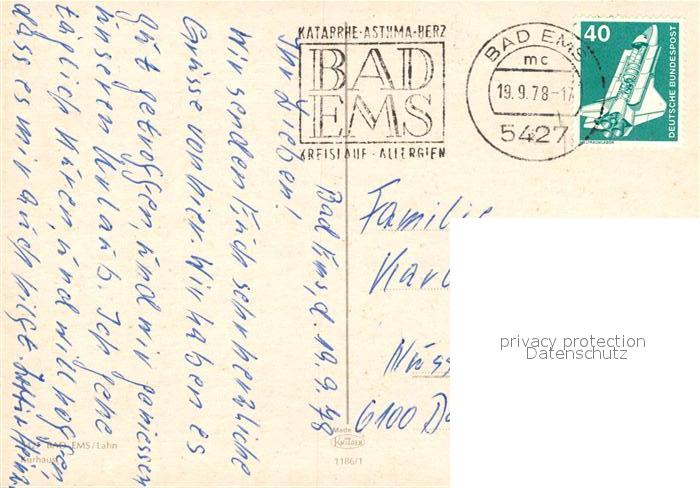 KATARRHE·ASTHMA·HERZ
BAD
EMS
KREISLAUF·ALLERGIEN
BAD EMS
mc
19.9.78-17
5427
40
DEUTSCHE BUNDESPOST
WELTRAUMLABOR
Bad Ems, d. 19.9.78
Ihr Lieben!
Wir senden Euch sehr herzliche
Grüsse von hier. Wir haben es
gut getroffen, und wir geniessen
unseren Urlaub. Ich gehe
täglich kuren, und will hoffen,
dass es mir auch hilft.
Familie
Karl
6100
privacy protection
Datenschutz
BAD EMS/Lahn
Kurhaus
Made
KRÜGER
1186/1